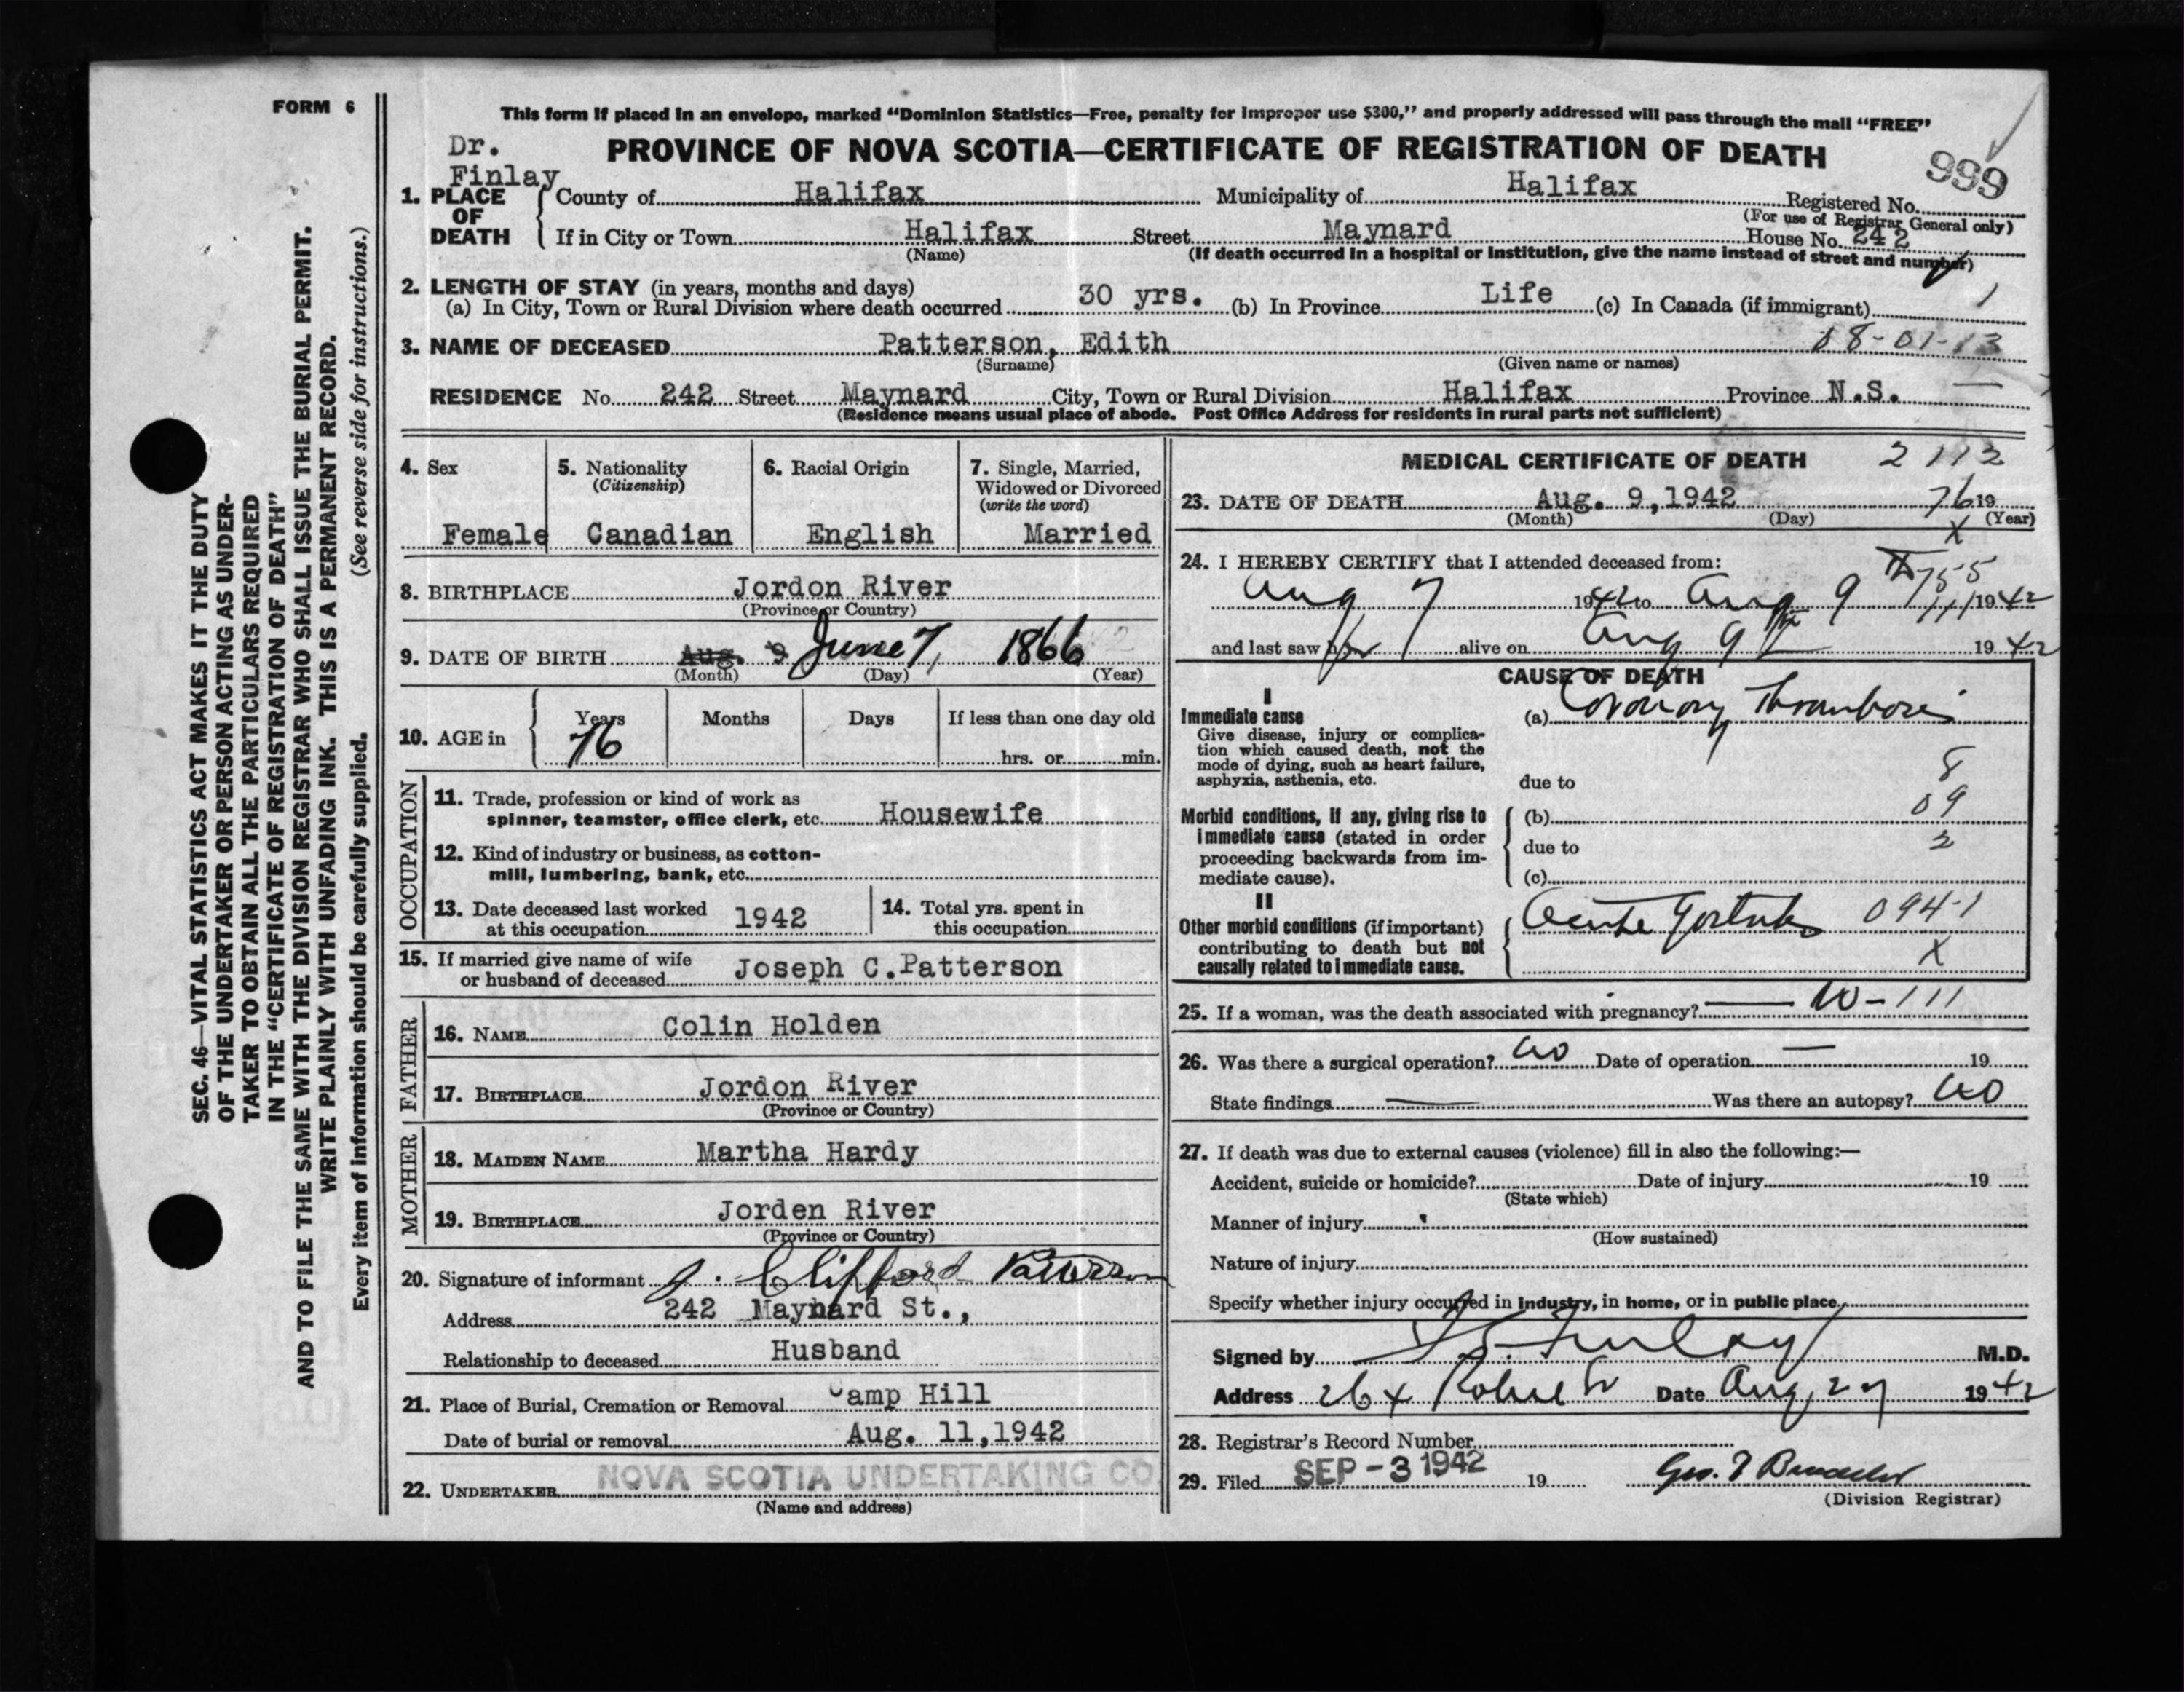 FORM 6
SEC. 46—VITAL STATISTICS ACT MAKES IT THE DUTY
OF THE UNDERTAKER OR PERSON ACTING AS UNDER-
TAKER TO OBTAIN ALL THE PARTICULARS REQUIRED
IN THE "CERTIFICATE OF REGISTRATION OF DEATH"
AND TO FILE THE SAME WITH THE DIVISION REGISTRAR WHO SHALL ISSUE THE BURIAL PERMIT.
WRITE PLAINLY WITH UNFADING INK. THIS IS A PERMANENT RECORD.
Every item of information should be carefully supplied. (See reverse side for instructions.)
This form if placed in an envelope, marked "Dominion Statistics—Free, penalty for improper use $300," and properly addressed will pass through the mail "FREE"
Dr.
Finlay
PROVINCE OF NOVA SCOTIA—CERTIFICATE OF REGISTRATION OF DEATH
999
1. PLACE OF DEATH
County of Halifax Municipality of Halifax Registered No.
(For use of Registrar General only)
If in City or Town Halifax Street Maynard House No. 242
(Name) (If death occurred in a hospital or institution, give the name instead of street and number)
2. LENGTH OF STAY (in years, months and days)
(a) In City, Town or Rural Division where death occurred 30 yrs. (b) In Province Life (c) In Canada (if immigrant) 1
3. NAME OF DECEASED Patterson, Edith 08-01-13
(Surname) (Given name or names)
RESIDENCE No. 242 Street Maynard City, Town or Rural Division Halifax Province N.S.
(Residence means usual place of abode. Post Office Address for residents in rural parts not sufficient)
4. Sex
Female
5. Nationality
(Citizenship)
Canadian
6. Racial Origin
English
7. Single, Married,
Widowed or Divorced
(write the word)
Married
8. BIRTHPLACE Jordon River
(Province or Country)
9. DATE OF BIRTH Aug. 9 June 7, 1866
(Month) (Day) (Year)
10. AGE in
Years Months Days If less than one day old
76 hrs. or min.
OCCUPATION
11. Trade, profession or kind of work as
spinner, teamster, office clerk, etc. Housewife
12. Kind of industry or business, as cotton-
mill, lumbering, bank, etc.
13. Date deceased last worked
at this occupation 1942
14. Total yrs. spent in
this occupation
15. If married give name of wife
or husband of deceased Joseph C. Patterson
FATHER
16. NAME Colin Holden
17. BIRTHPLACE Jordon River
(Province or Country)
MOTHER
18. MAIDEN NAME Martha Hardy
19. BIRTHPLACE Jorden River
(Province or Country)
20. Signature of informant J. Clifford Patterson
Address 242 Maynard St.,
Relationship to deceased Husband
21. Place of Burial, Cremation or Removal Camp Hill
Date of burial or removal Aug. 11, 1942
22. UNDERTAKER NOVA SCOTIA UNDERTAKING CO.
(Name and address)
MEDICAL CERTIFICATE OF DEATH 2112
23. DATE OF DEATH Aug. 9, 1942 76 19
(Month) (Day) (Year)
X
24. I HEREBY CERTIFY that I attended deceased from:
755
Aug 7 1942 to Aug 9 111 1942
and last saw her alive on Aug 9 1942
CAUSE OF DEATH
I
Immediate cause
Give disease, injury or complica-
tion which caused death, not the
mode of dying, such as heart failure,
asphyxia, asthenia, etc.
(a) Coronary Thrombosis
due to 8
09
Morbid conditions, if any, giving rise to
immediate cause (stated in order
proceeding backwards from im-
mediate cause).
(b)
due to 2
(c)
II
Other morbid conditions (if important)
contributing to death but not
causally related to immediate cause.
Acute 094-1
X
25. If a woman, was the death associated with pregnancy? — 10-111
26. Was there a surgical operation? No Date of operation — 19
State findings — Was there an autopsy? No
27. If death was due to external causes (violence) fill in also the following:—
Accident, suicide or homicide? Date of injury 19
(State which)
Manner of injury
(How sustained)
Nature of injury
Specify whether injury occurred in industry, in home, or in public place
Signed by Finlay M.D.
Address 264 Robie St Date Aug, 27 1942
28. Registrar's Record Number
29. Filed SEP -3 1942 19
(Division Registrar)